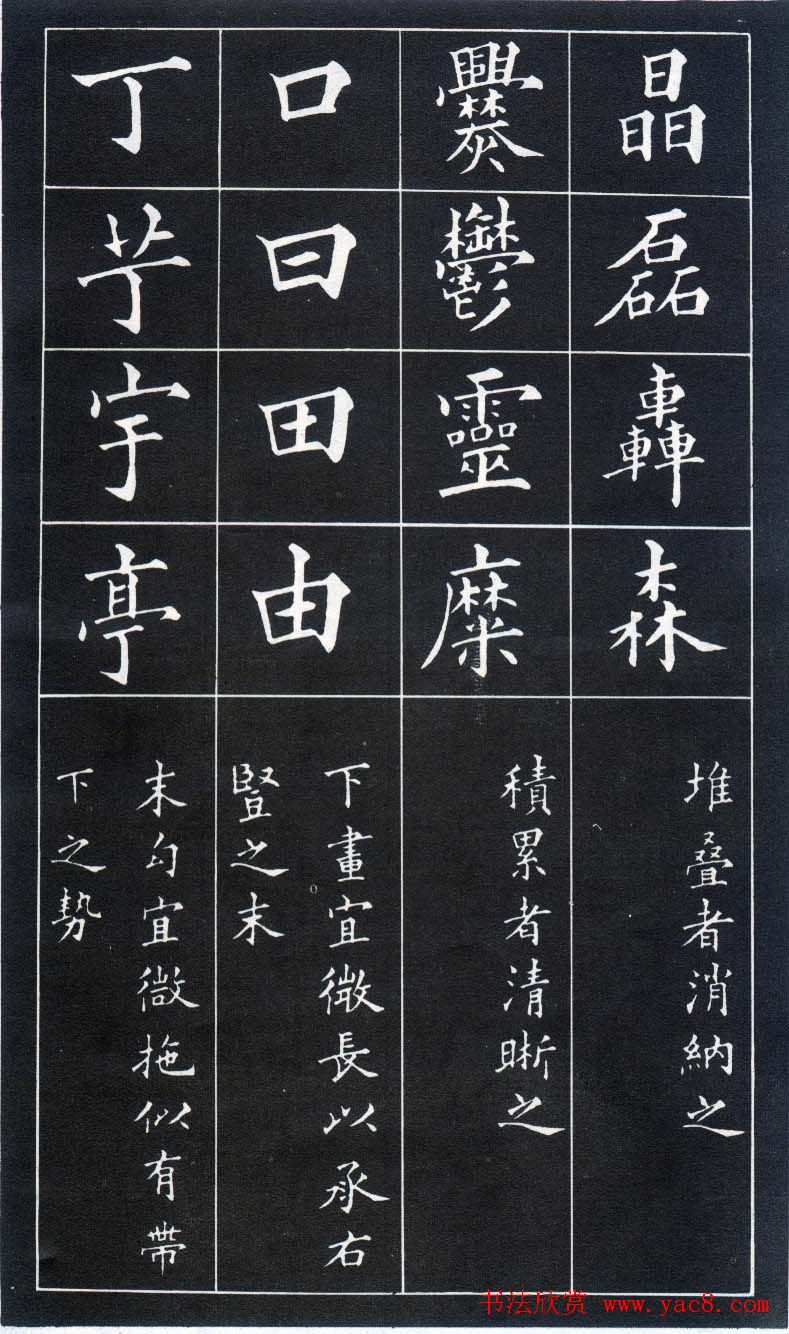 晶磊轟森
堆叠者消納之
爨鬱靈糜
積累者清晰之
口曰田由
下畫宜微長以承右
豎之末
丁艼宇亭
末勾宜微拖似有帶
下之勢
书法欣赏 www.yac8.com